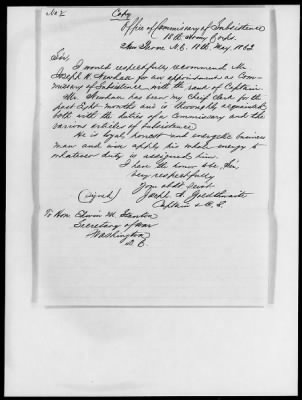 No 2
Copy
Office of Commissary of Subsistence
18th Army Corps
New Berne N.C. 18th May, 1863
Sir,
I would respectfully recommend Mr
Joseph H. for an appointment as Com-
missary of Subsistence with the rank of Captain
Mr. has been my Chief Clerk for the
past Eight months and is thoroughly acquainted
both with the duties of a Commissary and the
various articles of Subsistence.
He is loyal, honest and energetic business
man and will apply his whole energy to
whatever duty is assigned him.
I have the honor &c. Sir
Very respectfully
Your obdt Servt
(signed) Joseph A. Goldthwaite
Captain & C. S.
To Hon Edwin M. Stanton
Secretary of War
Washington
D. C.